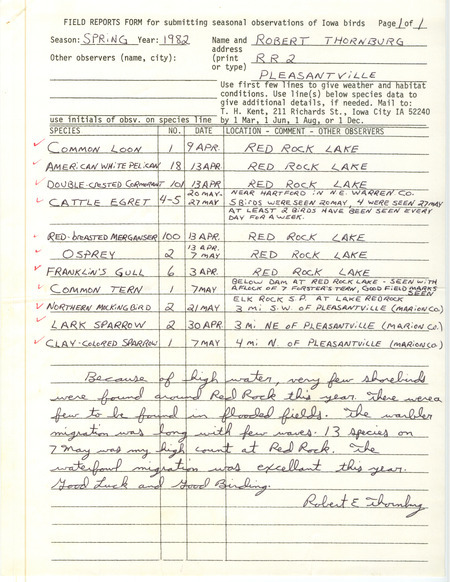 FIELD REPORTS FORM for submitting seasonal observations of Iowa birds Page 1 of 1
Season: SPRING Year: 1982 Name and ROBERT THORNBURG
address
Other observers (name, city): (print RR 2
or type)
PLEASANTVILLE
Use first few lines to give weather and habitat
conditions. Use line(s) below species data to
give additional details, if needed. Mail to:
T. H. Kent, 211 Richards St., Iowa City IA 52240
use initials of obsv. on species line by 1 Mar, 1 Jun, 1 Aug, or 1 Dec.
SPECIES NO. DATE LOCATION - COMMENT - OTHER OBSERVERS
COMMON LOON 1 9 APR RED ROCK LAKE
AMERICAN WHITE PELICAN 18 13 APR RED ROCK LAKE
DOUBLE-CRESTED CORMORANT 101 13 APR RED ROCK LAKE
20 MAY- NEAR HARTFORD IN N.E. WARREN CO.
CATTLE EGRET 4-5 27 MAY 5 BIRDS WERE SEEN 20 MAY, 4 WERE SEEN 27 MAY
AT LEAST 2 BIRDS HAVE BEEN SEEN EVERY
DAY FOR A WEEK.
RED-BREASTED MERGANSER 100 13 APR RED ROCK LAKE
13 APR.
OSPREY 2 7 MAY RED ROCK LAKE
FRANKLIN'S GULL 6 3 APR. RED ROCK LAKE
BELOW DAM AT RED ROCK LAKE - SEEN WITH
COMMON TERN 1 7 MAY A FLOCK OF 7 FORSTER'S TERN, GOOD FIELD MARKS
SEEN
ELK ROCK S.P. AT LAKE RED ROCK
NORTHERN MOCKINGBIRD 2 21 MAY 3 mi. S.W. OF PLEASANTVILLE (MARION CO.)
LARK SPARROW 2 30 APR. 3 mi NE OF PLEASANTVILLE (MARION CO.)
CLAY-COLORED SPARROW 1 7 MAY 4 mi N. OF PLEASANTVILLE (MARION CO.)
Because of high water, very few shorebirds
were found around Red Rock this year. There were a
few to be found in flooded fields. The warbler
migration was long with few waves. 13 species on
7 May was my high count at Red Rock. The
waterfowl migration was excellant this year.
Good Luck and Good Birding.
Robert E Thornburg